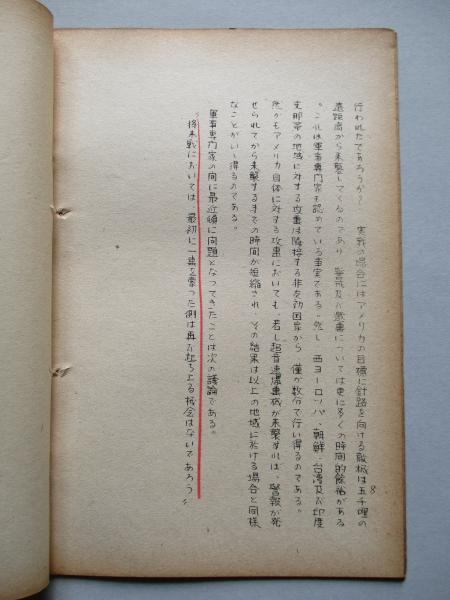 行われたであろうか？　実戦の場合にはアメリカの目標に針路を向ける敵机は五千哩の
遠距离から来襲してくるのであり、警戒及び激撃については更に多くの時間的餘裕がある
。これは軍事専門家も認めている事実である。然し、西ヨーロッパ、朝鮮、台湾及び印度
支那等の地域に対する攻撃は隣接する非友効国家から、僅か数分で行い得るのである。
然かもアメリカ自体に対する攻撃においても、若し超音速爆撃機が来襲すれば、警報が発
せられてから来襲するまでの時間が短縮され、その結果は以上の地域に於ける場合と同様
なことがいい得るのである。
軍事専門家の間に最近頓に問題となつてきたことは次の議論である。
〝将来戦においては、最初に一撃を喰つた側は再び起ち上る机会はないであろう〟
8